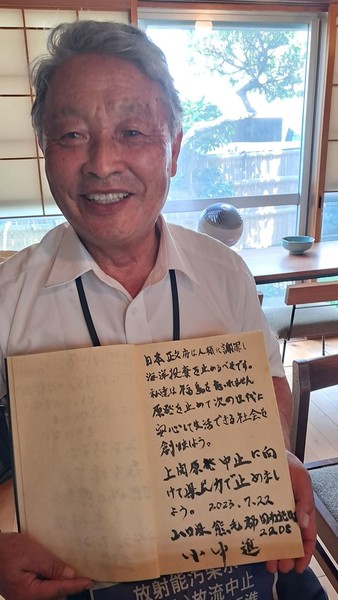 日本政府は人類に謝罪し
海洋投棄を止めるべきです。
私達は福島を忘れません
原発を止めて次の世代に
安心して生活できる社会を
創りましょう。
上関原発中止に向
けて県民力で止めまし
ょう。2023.7.22
山口県熊毛郡田布施町
2208
小中進
放射能汚染水
放流中止